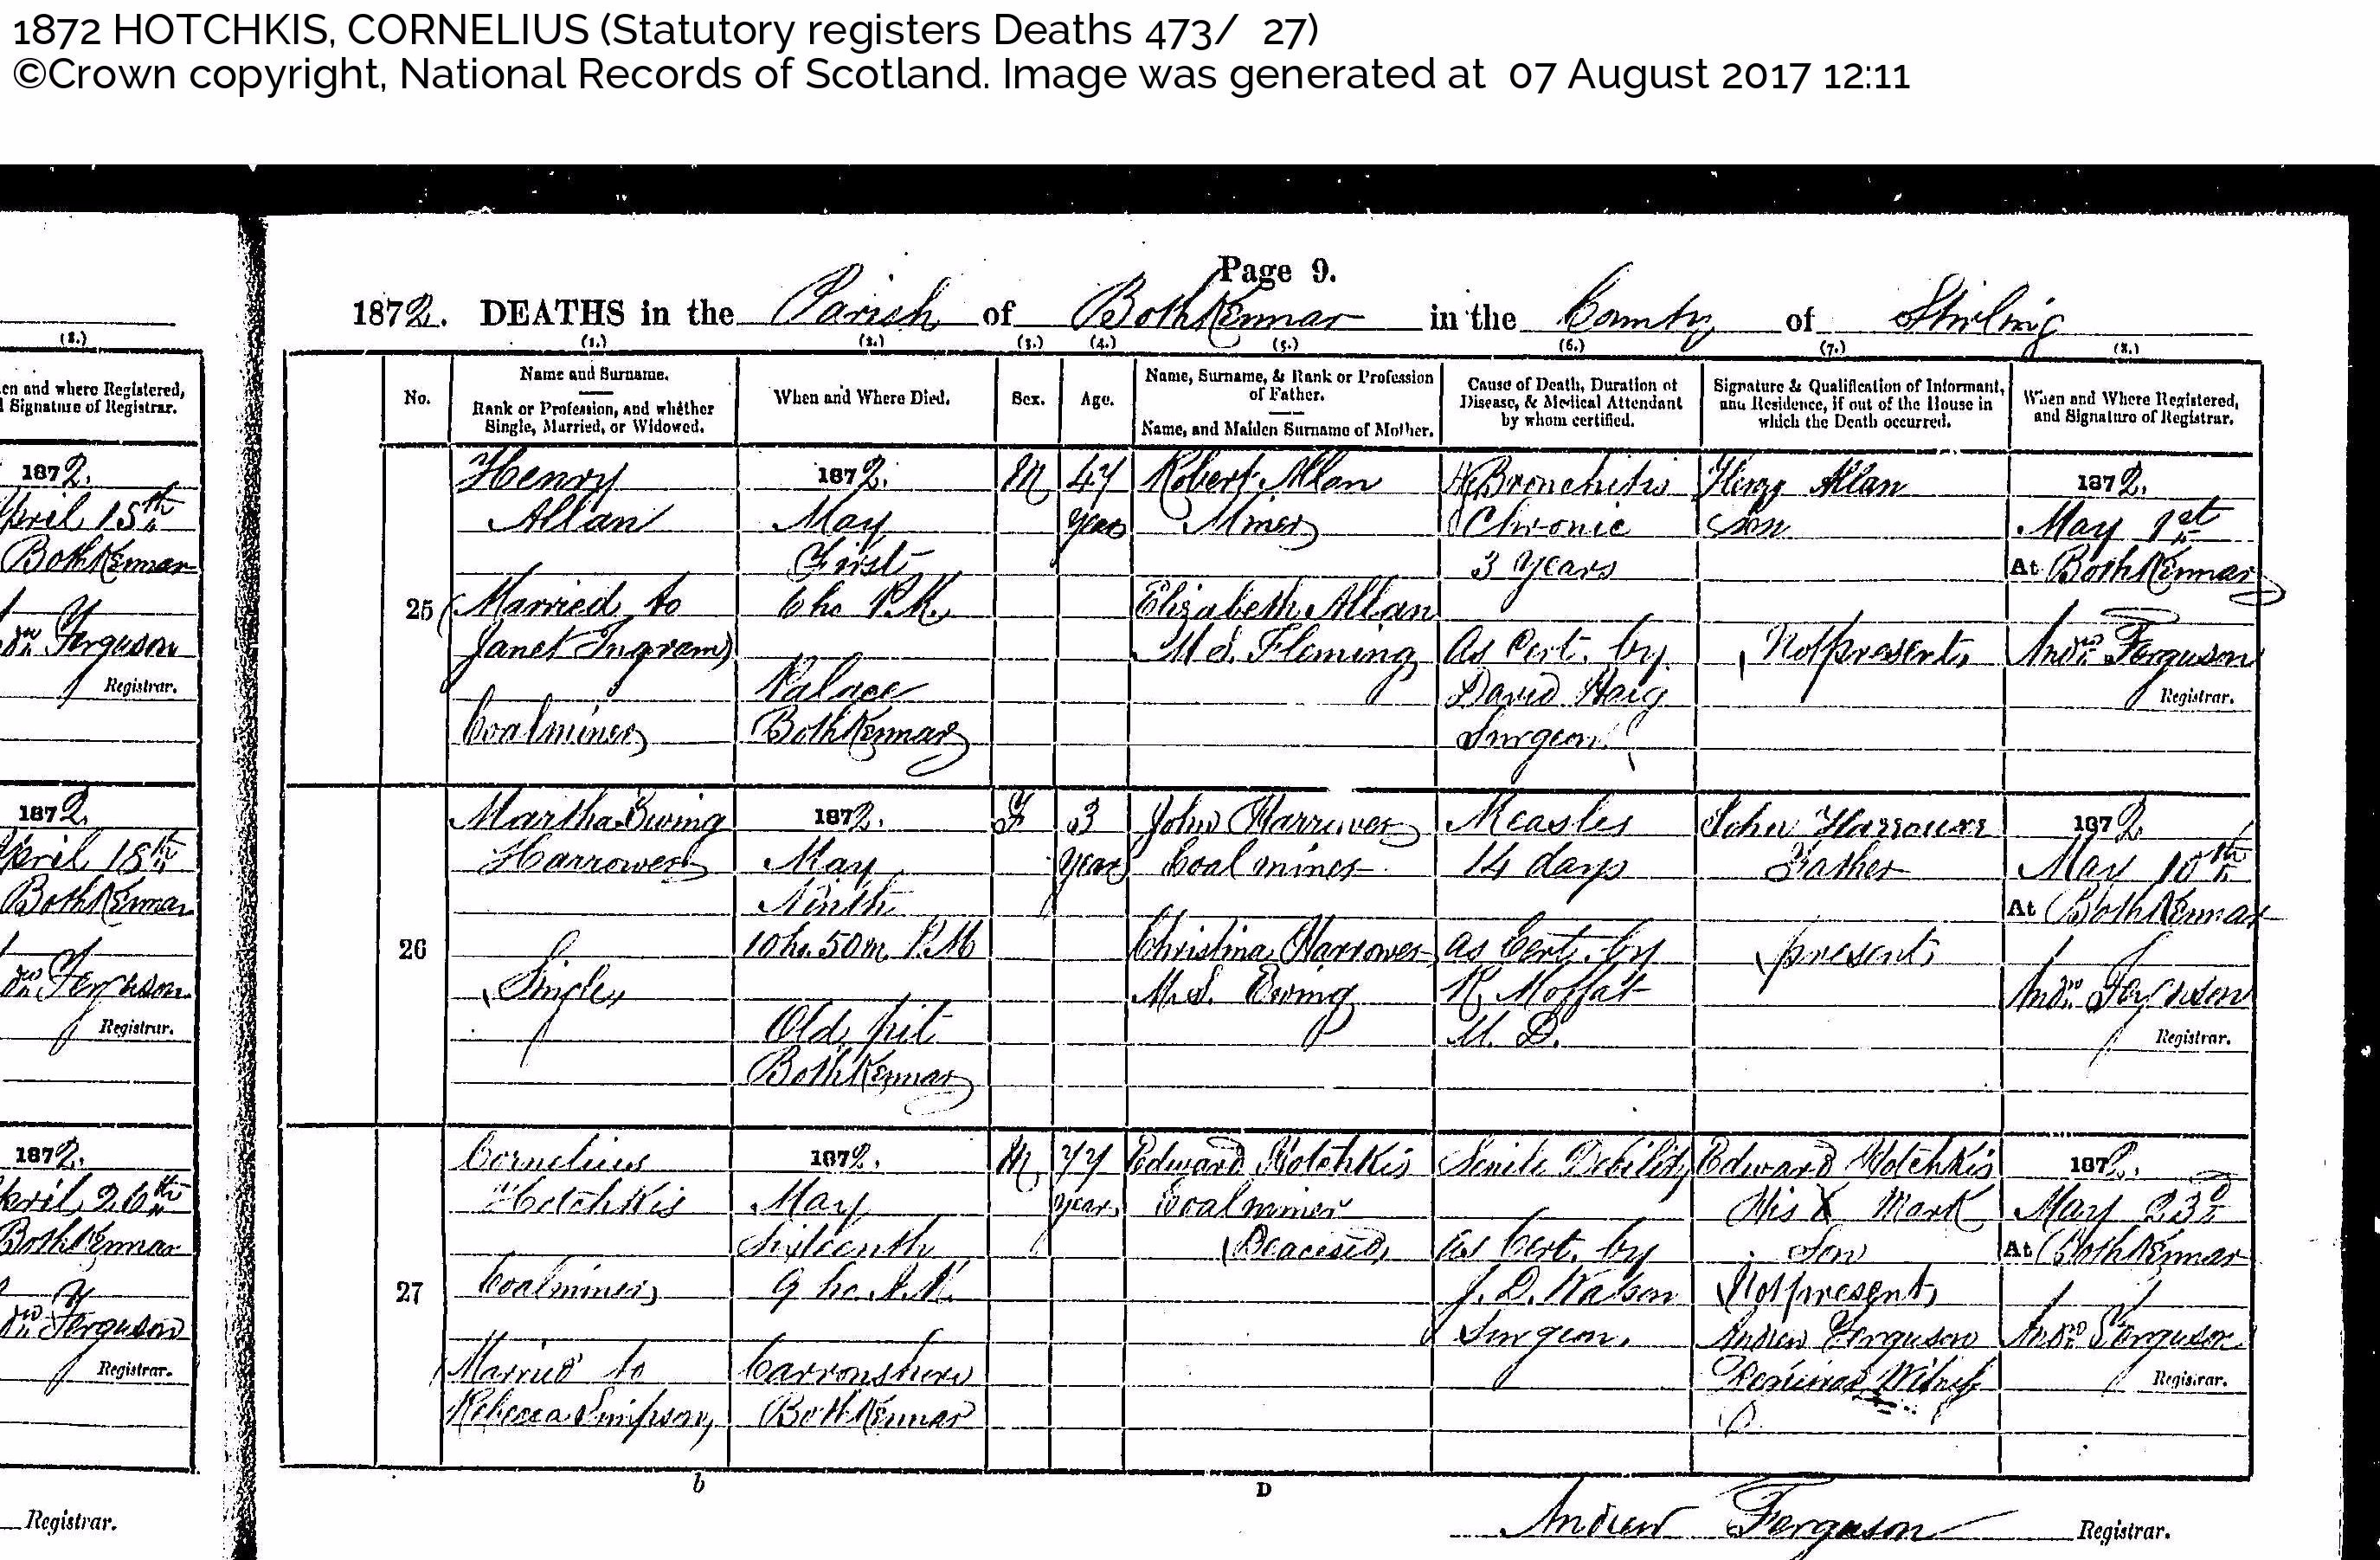 1872 HOTCHKIS, CORNELIUS (Statutory registers Deaths 473/ 27)
©Crown copyright, National Records of Scotland. Image was generated at 07 August 2017 12:11
Page 9.
1872. DEATHS in the Parish of BothKennar in the County of Stirling
(8.)
en and where Registered,
Signature of Registrar.
1872.
April 15th
BothKennar
Ferguson
Registrar.
1872.
April 18th
BothKennar
Ferguson
Registrar.
1872.
April 26th
BothKennar
Ferguson
Registrar.
Registrar.
(1.) (2.) (3.) (4.) (5.) (6.) (7.) (8.)
No.
Name and Surname.
Rank or Profession, and whether
Single, Married, or Widowed.
When and Where Died.
Sex.
Age.
Name, Surname, & Rank or Profession
of Father.
Name, and Maiden Surname of Mother.
Cause of Death, Duration of
Disease, & Medical Attendant
by whom certified.
Signature & Qualification of Informant,
and Residence, if out of the House in
which the Death occurred.
When and Where Registered,
and Signature of Registrar.
25
Henry
Allan
(Married to
Janet Ingram)
Coalminer
1872.
May
First
6 ho. P.M.
Palace
BothKennar
M
47
years
Robert Allan
Miner
Elizabeth Allan
M.S. Fleming
Bronchitis
Chronic
3 years
As Cert. by
David Haig
Surgeon
Henry Allan
Son
Not present,
1872.
May 1st
At BothKennar
Andw. Ferguson
Registrar.
26
Martha Ewing
Harrower
Single,
1872.
May
Ninth
10 ho. 50 m. P.M
Old pit
BothKennar
F
3
years
John Harrower
Coal miner
Christina Harrower
M.S. Ewing
Measles
14 days
as Cert. by
R. Moffat
M. D.
John Harrower
Father
present,
1872
May 10th
At BothKennar
Andw. Ferguson
Registrar.
27
Cornelius
Hotchkis
Coalminer,
Married to
Rebecca Simpson,
1872.
May
Sixteenth
9 ho. A.M.
Carronshore
BothKennar
M
77
years
Edward Hotchkis
Coalminer
(Deacesed)
Senile Debility
as Cert. by
J. D. Watson
Surgeon.
Edward Hotchkis
His X Mark
Son
Not present,
Andrew Ferguson
Registrar Witness
1872.
May 23d
At BothKennar
Andw. Ferguson
Registrar.
b
D
Andrew Ferguson Registrar.